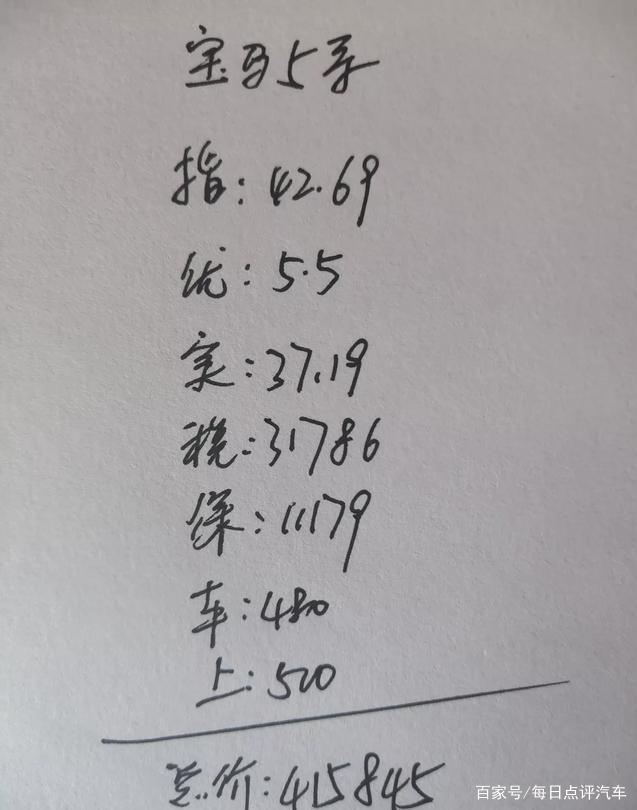 宝马5系
指:42.69
优:5.5
实:37.19
税:31786
保:11179
车:480
上:500
总价:415845
百家号/每日点评汽车